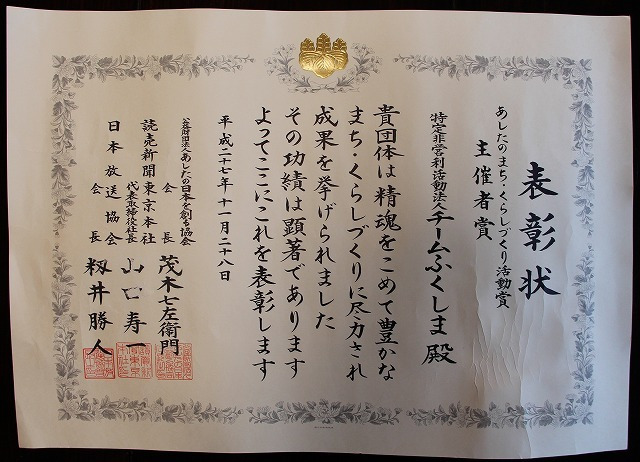 表彰状
あしたのまち・くらしづくり活動賞
主催者賞
特定非営利活動法人チームふくしま殿
貴団体は精魂をこめて豊かな
まち・くらしづくりに尽力され
成果を挙げられました
その功績は顕著であります
よってここにこれを表彰します
平成二十七年十一月二十八日
公益財団法人あしたの日本を創る協会
会長 茂木七左衛門
読売新聞東京本社
代表取締役社長 山口寿一
日本放送協会
会長 籾井勝人